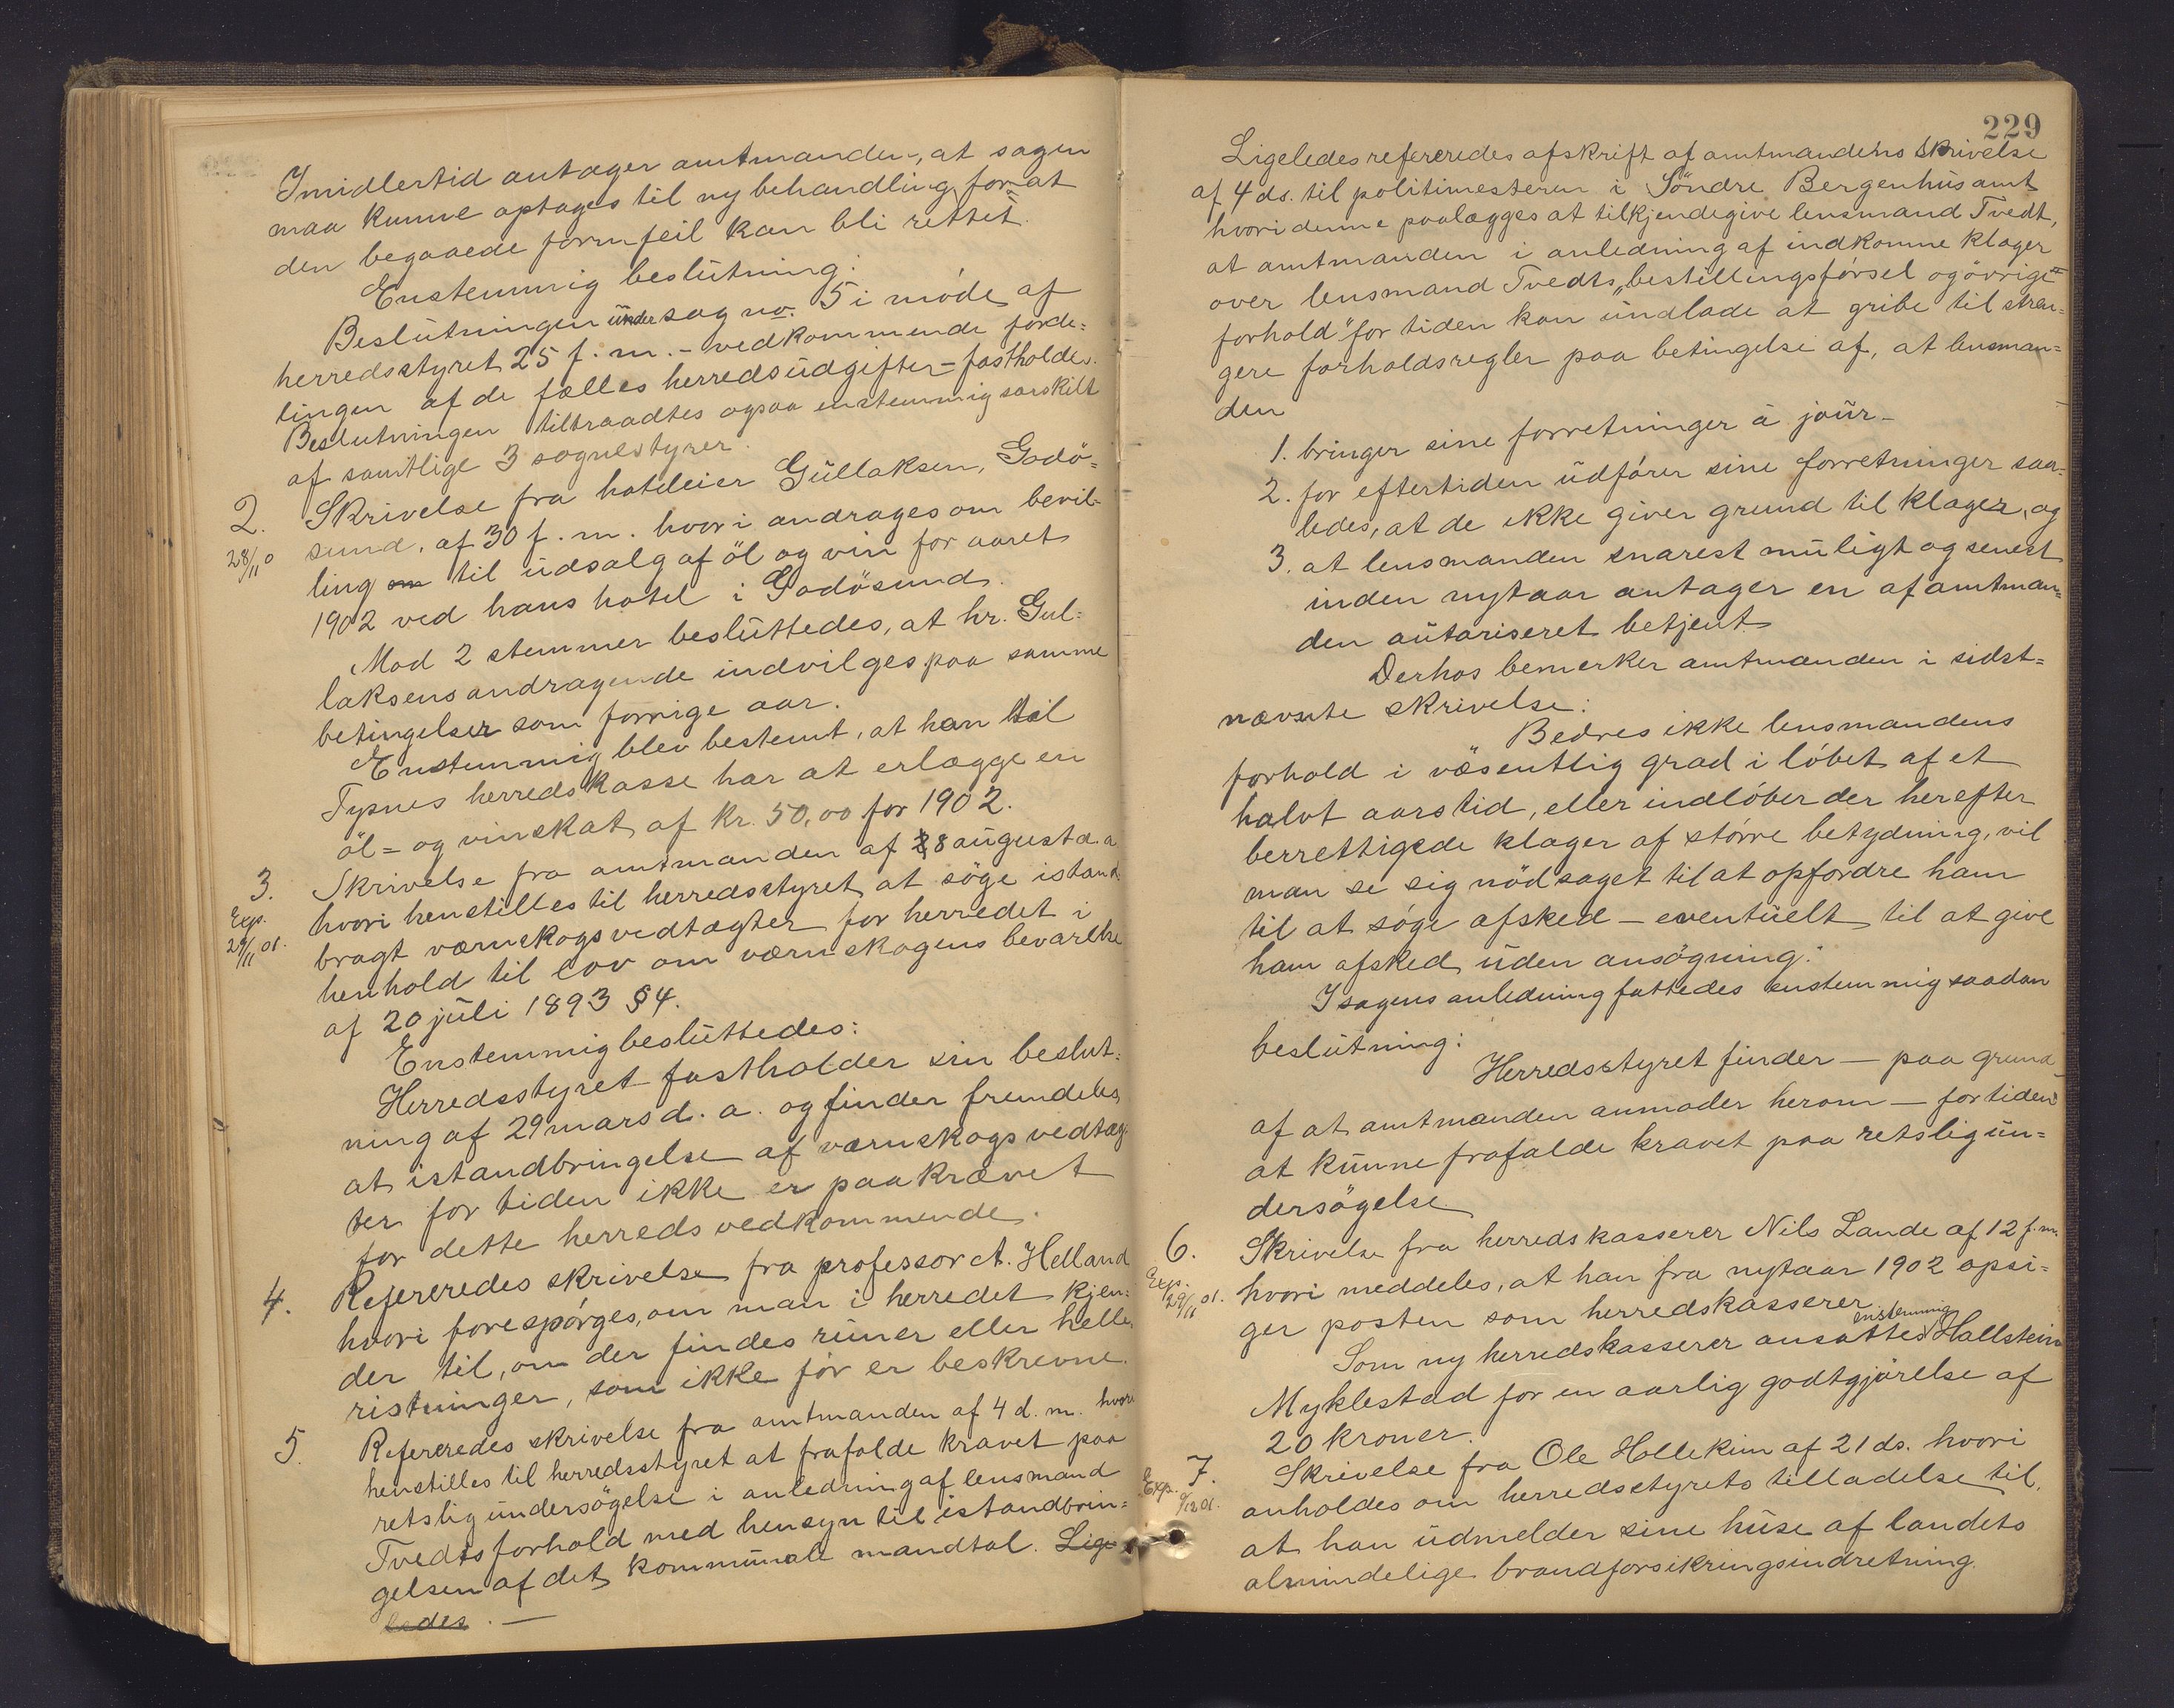 Imidlertid antager amtmanden, at sagen
maa kunne optages til ny behandling forat
den begaaede formfeil kan bli rettet.
Enstemmig beslutning:
Beslutningen under sag no. 5 i møde af
herredsstyret 25 f. m. - vedkommende forde=
lingen af de fælles herredsudgifter - fastholdes.
Beslutningen tiltraadtes ogsaa enstemmig særskilt
af samtlige 3 sognestyrer.
2.
28/11 0
Skrivelse fra hoteleier Gullaksen, Godö=
sund, af 30 f. m. hvori andrages om bevil=
ling om til udsalg af öl og vin for aaret
1902 ved hans hotel i Godösund.
Mod 2 stemmer besluttedes, at hr. Gul=
laksens andragende indvilges paa samme
betingelser som forrige aar.
Enstemmig blev bestemt, at han til
Tysnes herredskasse har at erlægge en
öl= og vinskat af kr. 50,00 for 1902.
3.
Exp.
29/11 01.
Skrivelse fra amtmanden af 28 august d. a
hvori henstilles til herredsstyret at söge istand=
bragt værnskogsvedtægter for herredet i
henhold til lov om værnskogens bevarelse
af 20 juli 1893 § 4.
Enstemmig besluttedes:
Herredsstyret fastholder sin beslut=
ning af 29 mars d. a. og finder fremdeles,
at istandbringelse af værnskogsvedtæg=
ter for tiden ikke er paakrævet
for dette herreds vedkommende.
4.
Refereredes skrivelse fra professor A. Helland
hvori forespørges, om man i herredet kjen=
der til, om der findes runer eller helle=
ristninger, som ikke før er beskrevne.
5.
Refereredes skrivelse fra amtmanden af 4 d. m. hvori
henstilles til herredsstyret at frafalde kravet paa
retslig undersögelse i anledning af lensmand
Tvedts forhold med hensyn til istandbrin=
gelsen af det kommunale mandtal. Lige
ledes. —
229
Ligeledes refereredes afskrift af amtmandens skrivelse
af 4 ds. til politimesteren i Söndre Bergenhus amt
hvori denne paalægges at tilkjendegive lensmand Tvedt,
at amtmanden i anledning af indkomne klager
over lensmand Tvedts „bestillingsførsel og övrige
forhold" for tiden kan undlade at gribe til stræn=
gere forholdsregler paa betingelse af, at lensman=
den
1. bringer sine forretninger à jour -
2. for eftertiden udfører sine forretninger saa=
ledes, at de ikke giver grund til klager, og
3. at lensmanden snarest muligt og senest
inden nytaar antager en af amtman=
den autoriseret betjent
Derhos bemerker amtmanden i sidst=
nævnte skrivelse:
Bedres ikke lensmandens
forhold i væsentlig grad i løbet af et
halvt aars tid, eller indløber der herefter
berrettigede klager af større betydning, vil
man se sig nödsaget til at opfordre ham
til at søge afsked - eventuelt til at give
ham afsked uden ansögning.
I sagens anledning fattedes enstemmig saadan
beslutning:
Herredsstyret finder - paa grund
af at amtmanden anmoder herom - for tiden
at kunne frafalde kravet paa retslig un=
dersögelse
6.
Exp.
29/11 01.
Skrivelse fra herredskasserer Nils Lande af 12 f. m.
hvori meddeles, at han fra nytaar 1902 opsi=
ger posten som herredskasserer.
enstemmig
Som ny herredskasserer ansattes Hallstein
Myklestad for en aarlig godtgjörelse af
20 kroner.
7.
Exp.
Skrivelse fra Ole Hollekim af 21 ds. hvori
anholdes om herredsstyrets tilladelse til,
at han udmelder sine huse af landets
almindelige brandforsikringsindretning.